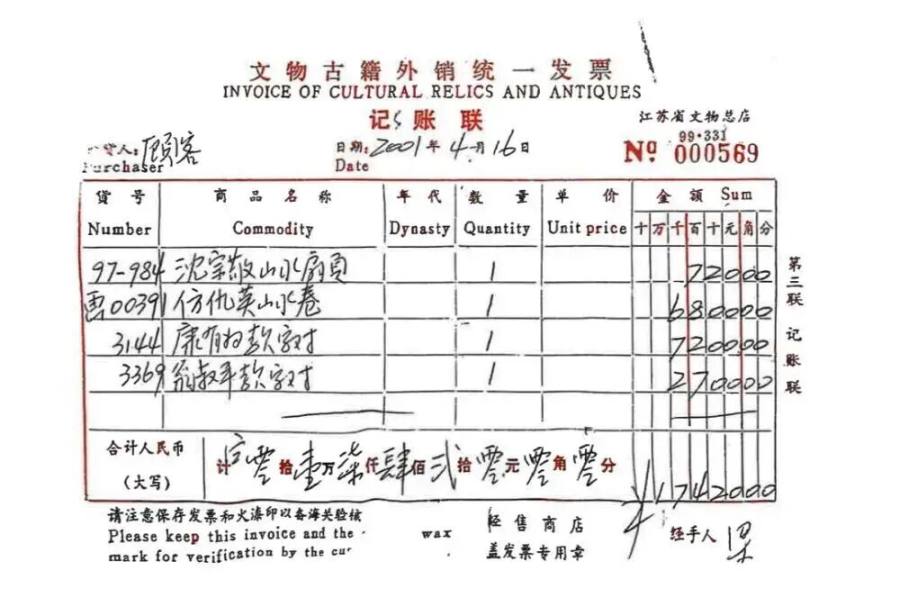 文物古籍外销统一发票
INVOICE OF CULTURAL RELICS AND ANTIQUES
记账联
江苏省文物总店
99·331
货人: 顾客
Purchaser
日期: 2001年4月16日
Date
Nº 000569
货号 商品名称 年代 数量 单价 金额 Sum
Number Commodity Dynasty Quantity Unit price 十万千百十元角分
97-984 沈宗敬山水扇页 1 72000
画00391 仿仇英山水卷 1 680000
3144 康有为款字对 1 720000
3369 翁叔平款字对 1 270000
合计人民币
(大写)
计 零拾壹万柒仟肆佰贰拾零元零角零分
¥1742000
第三联 记账联
请注意保存发票和火漆印以备海关验核
Please keep this invoice and the wax
mark for verification by the cu
经售商店
盖发票专用章
经手人 梁